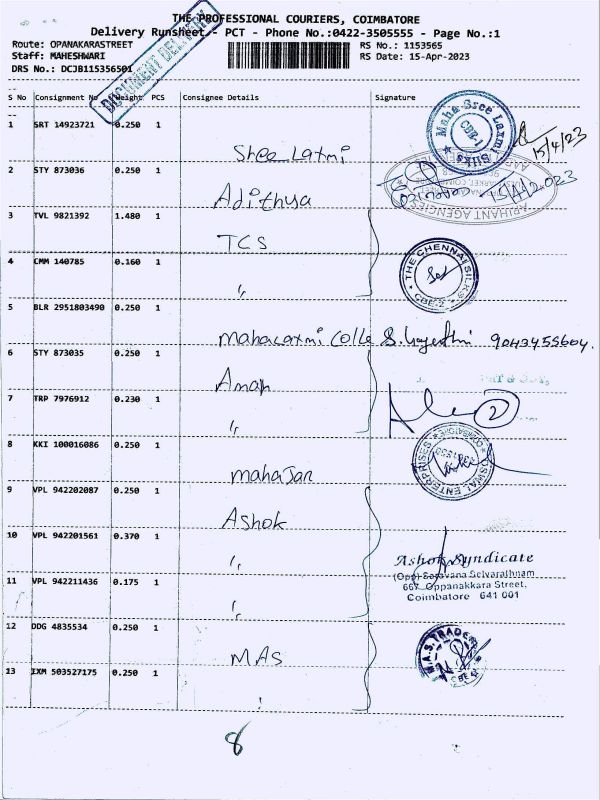 THE PROFESSIONAL COURIERS, COIMBATORE
Delivery Runsheet - PCT - Phone No.:0422-3505555 - Page No.:1
Route: OPANAKARASTREET RS No.: 1153565
Staff: MAHESHWARI RS Date: 15-Apr-2023
DRS No.: DCJB115356501
DOCUMENT DELIVERY
S No Consignment No Weight PCS Consignee Details Signature
1 SRT 14923721 0.250 1
Shree Laxmi
Maha Sree Laxmi Silks CBE-1
15/4/23
2 STY 873036 0.250 1
Adithya
ARIHANT AGENCIES
3 TVL 9821392 1.480 1
TCS
4 CMM 140785 0.160 1
"
THE CHENNAI SILKS CBE-2
5 BLR 2951803490 0.250 1
mahalaxmi Colle 9043455604.
6 STY 873035 0.250 1
Aman
7 TRP 7976912 0.230 1
"
2
8 KKI 100016086 0.250 1
mahajan
OSWAL ENTERPRISES COIMBATORE
9 VPL 942202087 0.250 1
Ashok
10 VPL 942201561 0.370 1
"
Ashok Syndicate
(Opp) Saravana Selvarathnam
667 Oppanakkara Street,
Coimbatore 641 001
11 VPL 942211436 0.175 1
"
12 DDG 4835534 0.250 1
MAS
M.A.S. TRADERS
13 IXM 503527175 0.250 1
8